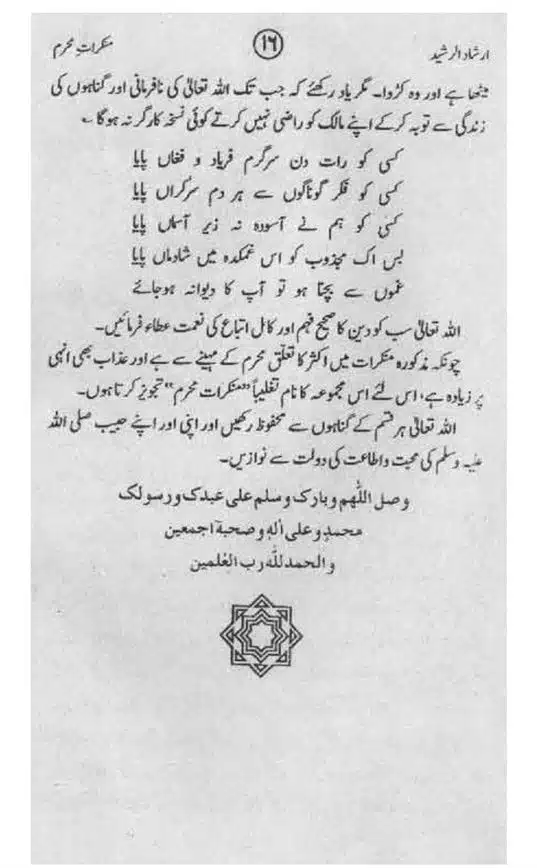 ارشاد الرشید
۱۶
منکراتِ محرم
میٹھا ہے اور وہ کڑوا۔ مگر یاد رکھئے کہ جب تک اللہ تعالیٰ کی نافرمانی اور گناہوں کی
زندگی سے توبہ کر کے اپنے مالک کو راضی نہیں کرتے کوئی نسخہ کارگر نہ ہوگا ؎
کسی کو رات دن سرگرم فریاد و فغاں پایا
کسی کو فکر گوناگوں سے ہر دم سرگراں پایا
کسی کو ہم نے آسودہ نہ زیر آسماں پایا
بس اک مجذوب کو اس غمکدہ میں شادماں پایا
غموں سے بچنا ہو تو آپ کا دیوانہ ہوجائے
اللہ تعالیٰ سب کو دین کا صحیح فہم اور کامل اتباع کی نعمت عطاء فرمائیں۔
چونکہ مذکورہ منکرات میں اکثر کا تعلق محرم کے مہینے سے ہے اور عذاب بھی انہی
پر زیادہ ہے، اس لئے اس مجموعہ کا نام تغلیباً ”منکرات محرم“ تجویز کرتا ہوں۔
اللہ تعالیٰ ہر قسم کے گناہوں سے محفوظ رکھیں اور اپنی اور اپنے حبیب صلی اللہ
علیہ وسلم کی محبت و اطاعت کی دولت سے نوازیں۔
وصل اللّٰهم وبارک وسلم علی عبدک ورسولک
محمد وعلی اٰلهٖ وصحبهٖ اجمعین
والحمد للّٰه رب العٰلمین